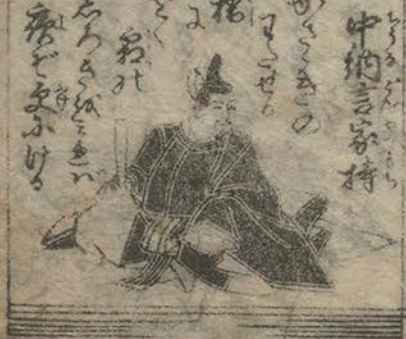 中納言家持
かさゝきの
わたせる
橋
に
く
霜の
しろきをみれハ
夜ぞ更にける